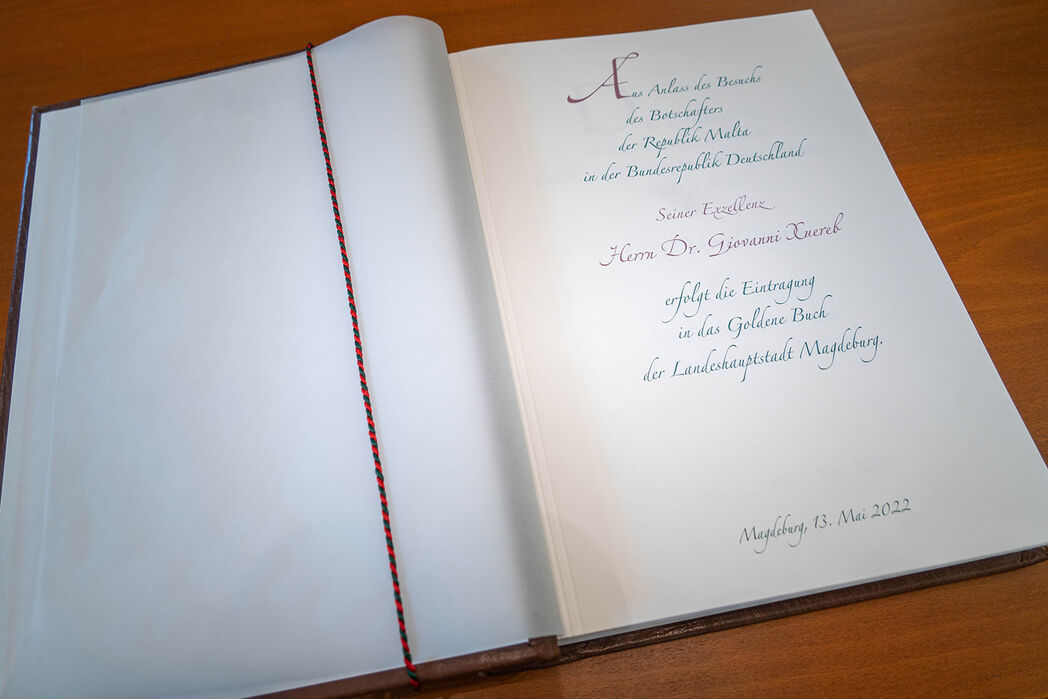 Aus Anlass des Besuchs
des Botschafters
der Republik Malta
in der Bundesrepublik Deutschland
Seiner Exzellenz
Herrn Dr. Giovanni Xuereb
erfolgt die Eintragung
in das Goldene Buch
der Landeshauptstadt Magdeburg.
Magdeburg, 13. Mai 2022